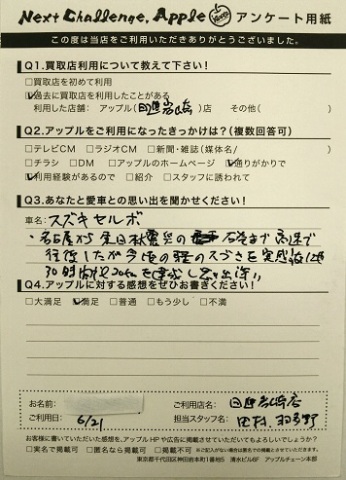 Next Challenge. Apple アンケート用紙
この度は当店をご利用いただきありがとうございました。
Q1.買取店利用について教えて下さい!
□買取店を初めて利用
☑過去に買取店を利用したことがある
利用した店舗: アップル(日進岩崎)店 その他( )
Q2.アップルをご利用になったきっかけは?(複数回答可)
□テレビCM □ラジオCM □新聞・雑誌(媒体名/ )
□チラシ □DM □アップルのホームページ ☑通りがかりで
☑利用経験があるので □紹介 □スタッフに誘われて
Q3.あなたと愛車との思い出を聞かせください!
車名:スズキセルボ
・名古屋から東日本震災の 石巻まで 高速で
往復したが 今の軽のスゴさを実感
30時間
Q4.アップルに対する感想をぜひお書きください!
□大満足 ☑満足 □普通 □もう少し □不満
お名前:
ご利用店名: 日進岩崎店
ご利用日: 6/21
担当スタッフ名: 田村
お客様に書いていただいた感想を、アップルHPや広告に掲載させていただいてもよろしいでしょうか?
□実名で掲載可 □匿名なら掲載可 □掲載不可 ※ご記入がない場合は匿名での掲載とさせていただきます。
東京都千代田区神田岩本町1番地5 清水ビル6F アップルチェーン本部